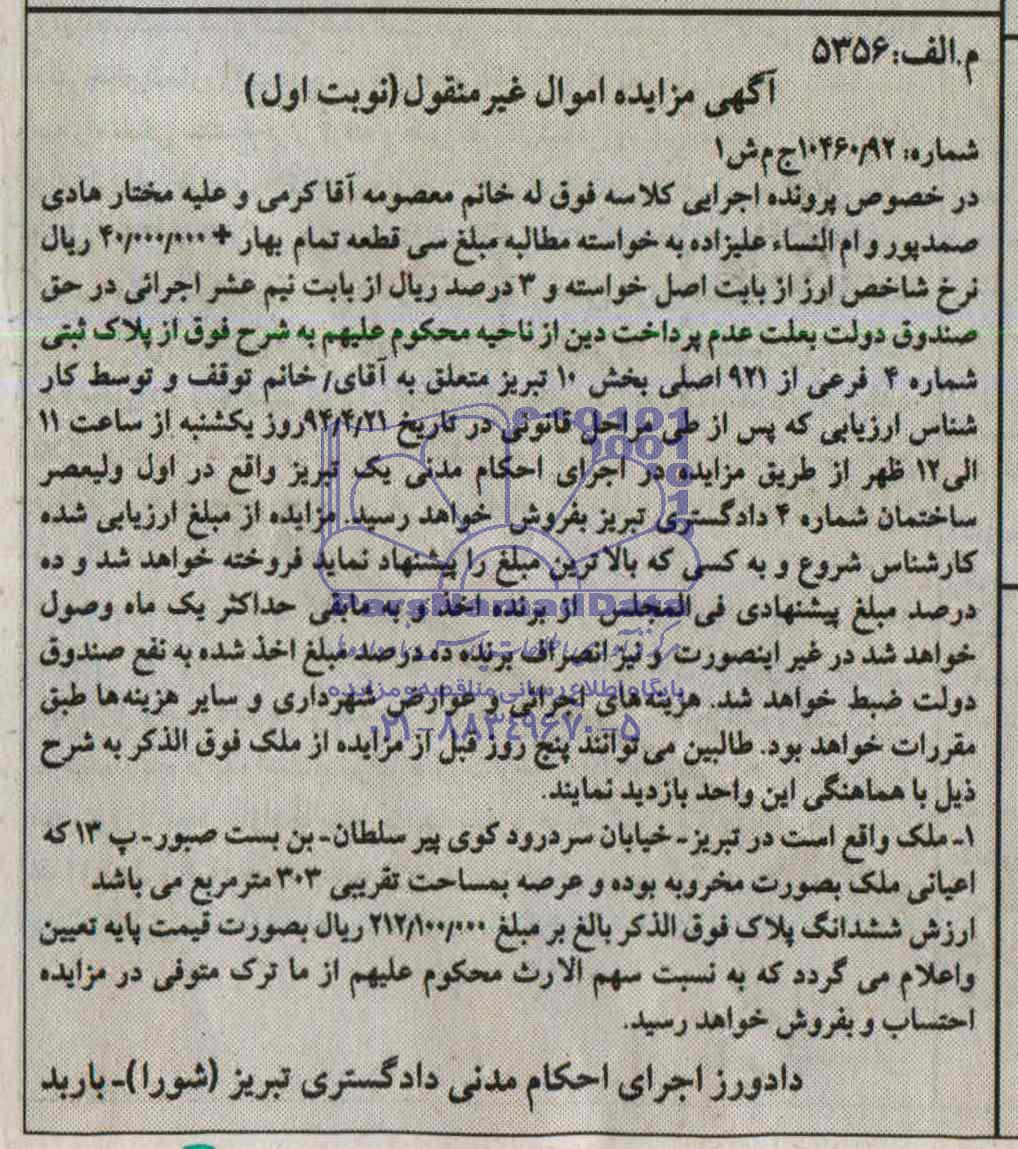 م.الف: ۵۳۵۶
آگهی مزایده اموال غیرمنقول (نوبت اول)
شماره: ۱۰۴۶۰/۹۲ج م ش ۱
در خصوص پرونده اجرایی کلاسه فوق له خانم معصومه آقا کرمی و علیه مختار هادی
صمدپور و ام النساء علیزاده به خواسته مطالبه مبلغ سی قطعه تمام بهار + ۴۰/۰۰۰/۰۰۰ ریال
نرخ شاخص ارز از بابت اصل خواسته و ۳ درصد ریال از بابت نیم عشر اجرائی در حق
صندوق دولت بعلت عدم پرداخت دین از ناحیه محکوم علیهم به شرح فوق از پلاک ثبتی
شماره ۴ فرعی از ۹۲۱ اصلی بخش ۱۰ تبریز متعلق به آقای/ خانم توقف و توسط کار
شناس ارزیابی که پس از طی مراحل قانونی در تاریخ ۹۴/۴/۲۱روز یکشنبه از ساعت ۱۱
الی۱۲ ظهر از طریق مزایده در اجرای احکام مدنی یک تبریز واقع در اول ولیعصر
ساختمان شماره ۴ دادگستری تبریز بفروش خواهد رسید. مزایده از مبلغ ارزیابی شده
کارشناس شروع و به کسی که بالاترین مبلغ را پیشنهاد نماید فروخته خواهد شد و ده
درصد مبلغ پیشنهادی فی‌المجلس از برنده اخذ و به مابقی حداکثر یک ماه وصول
خواهد شد در غیر اینصورت و نیز انصراف برنده ده درصد مبلغ اخذ شده به نفع صندوق
دولت ضبط خواهد شد. هزینه‌های اجرائی و عوارض شهرداری و سایر هزینه‌ها طبق
مقررات خواهد بود. طالبین می توانند پنج روز قبل از مزایده از ملک فوق الذکر به شرح
ذیل با هماهنگی این واحد بازدید نمایند.
۱ـ ملک واقع است در تبریزـ خیابان سردرود کوی پیر سلطان- بن بست صبورـ پ ۱۳ که
اعیانی ملک بصورت مخروبه بوده و عرصه بمساحت تقریبی ۳۰۳ مترمربع می باشد
ارزش ششدانگ پلاک فوق الذکر بالغ بر مبلغ ۲۱۲/۱۰۰/۰۰۰ ریال بصورت قیمت پایه تعیین
واعلام می گردد که به نسبت سهم الارث محکوم علیهم از ما ترک متوفی در مزایده
احتساب و بفروش خواهد رسید.
دادورز اجرای احکام مدنی دادگستری تبریز (شورا)ـ باربد
ParsNamadData
پایگاه اطلاع رسانی مناقصه و مزایده
۰۲۱-۸۸۳۴۹۶۷۰-۵